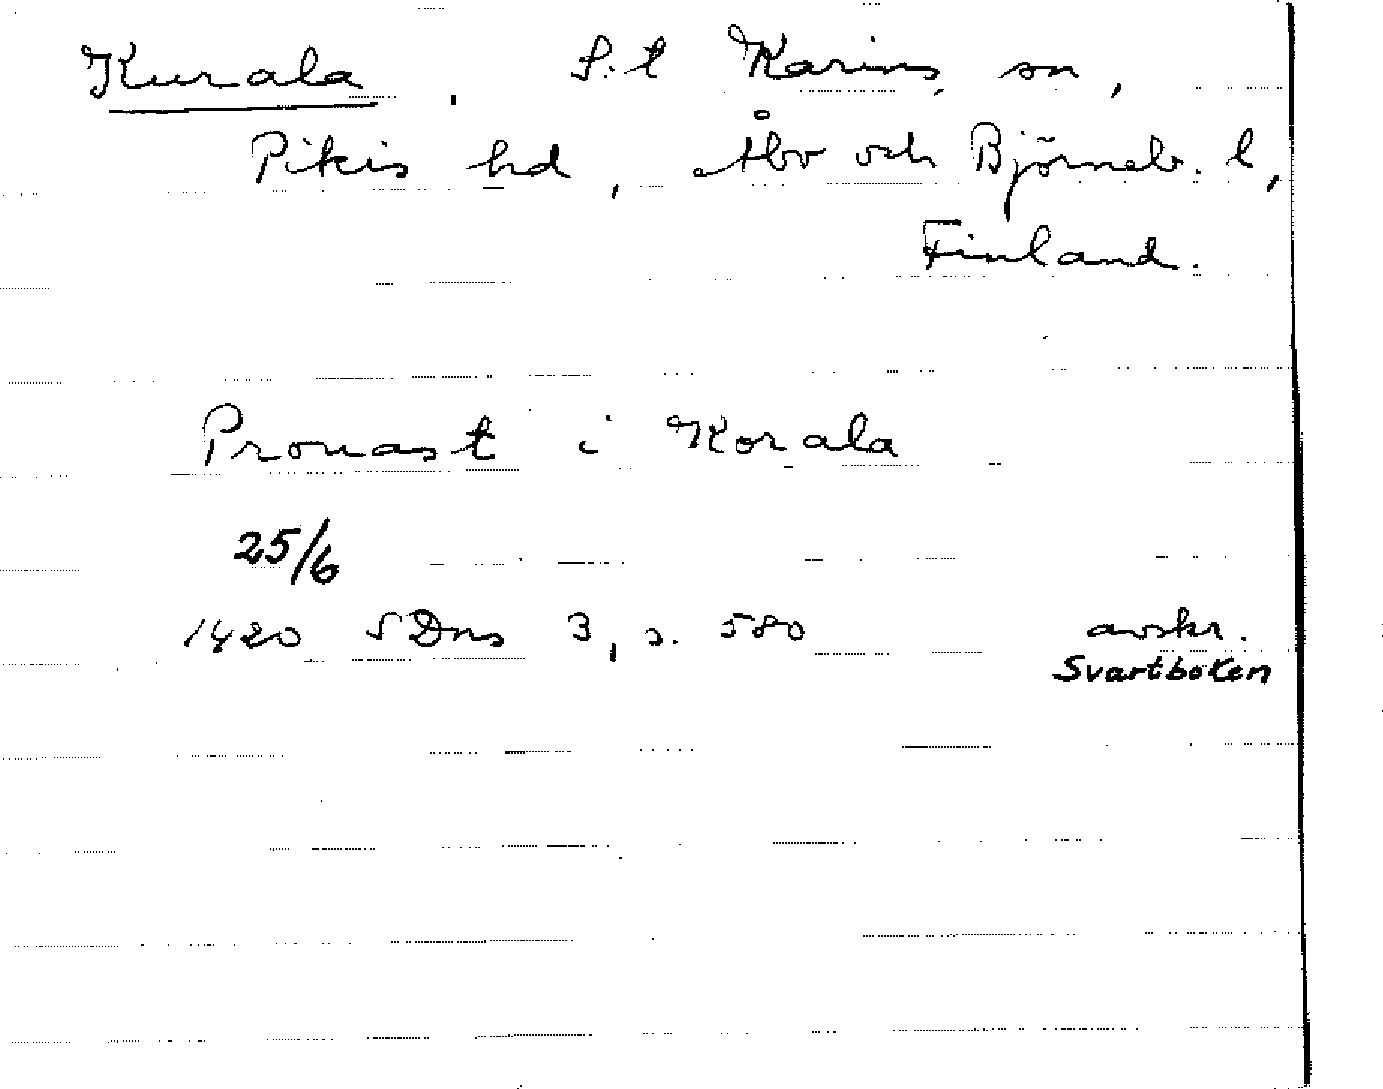 Kurala, S:t Karins, sn,
Pikis hd, Åbo och Björneb. l,
Finland.
Prouast i Korala
25/6
1420 SDns 3, s. 580 avskr.
Svartboken